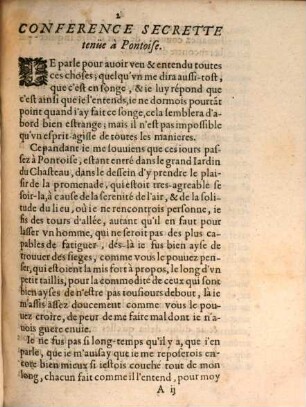 2
CONFERENCE SECRETTE
tenuë à Pontoise.
IE parle pour auoir veu & entendu toutes
ces choses; quelqu'vn me dira aussi-tost,
que c'est en songe, & ie luy répond que
c'est ainsi que ie l'entends, ie ne dormois pourtāt
point quand i'ay fait ce songe, cela semblera d'a-
bord bien estrange; mais il n'est pas impossible
qu'vn esprit agisse de toutes les manieres.
Cepandant ie me souuiens que ces iours pas-
sez à Pontoise, estant entré dans le grand Iardin
du Chasteau, dans le dessein d'y prendre le plai-
sir de la promenade, qui estoit tres-agreable se
soir-là, à cause de la serenité de l'air, & de la soli-
tude du lieu, où ie ne rencontrois personne, ie
fis des tours d'allée, autant qu'il en faut pour
lasser vn homme, qui ne seroit pas des plus ca-
pables de fatiguer, dés-là ie fus bien ayse de
trouuer des sieges, comme vous le pouuez pen-
ser, qui estoient la mis fort à propos, le long d'vn
petit taillis, pour la commodité de ceux qui sont
bien ayses de n'estre pas tousiours debout, là ie
m'assis assez doucement comme vous le pou-
uez croire, de peur de me faire mal dont ie n'a-
uois guere enuie.
Ie ne fus pas si long-temps qu'il y a, que i'en
parle, que ie m'aisay que ie reposerois en-
core bien mieux si i'estois couché tout de mon
long, chacun fait comme il l'entend, pour moy
A ij